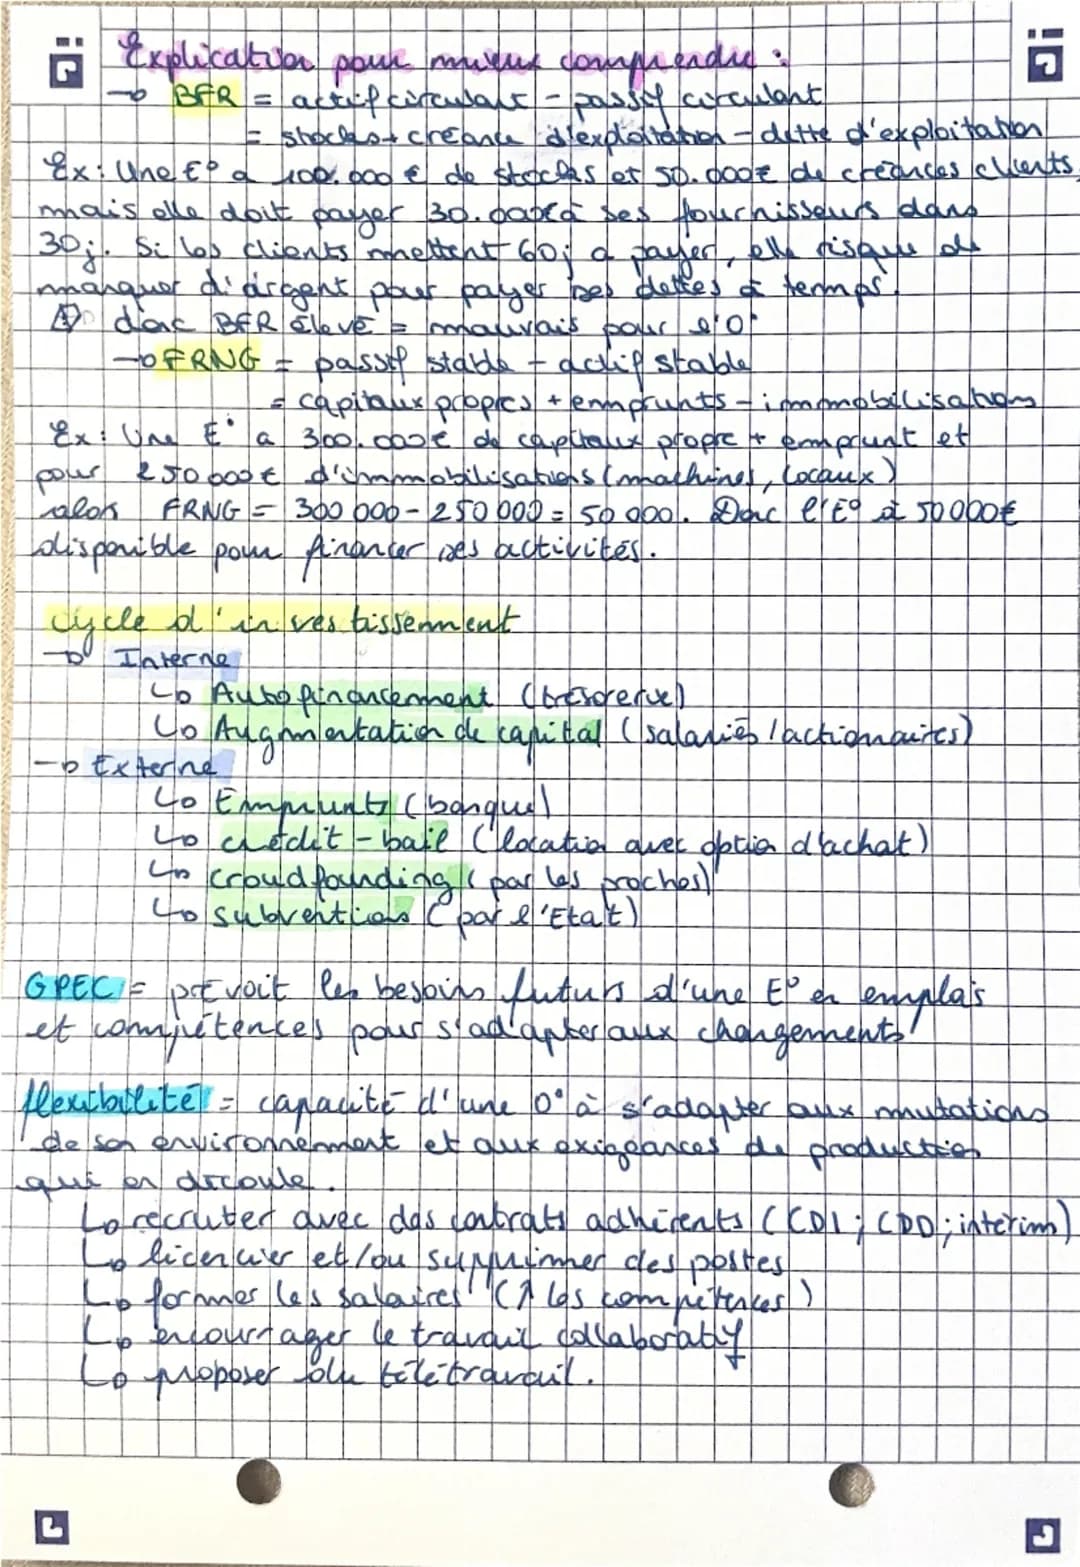 Explication pour mieux comprendre :
→ BFR = actif circulant - passif circulant
= stocks + créance d'exploitation - dette d'exploitation
Ex : Une E° a 100.000 € de stocks et 50.000€ de créances clients,
mais elle doit payer 30.000€ à ses fournisseurs dans
30j. Si les clients mettent 60j a payer, elle risque de
manquer d'argent pour payer ses dettes à temps.
donc BFR élevé = mauvais pour l'O°
→ FRNG = passif stable - actif stable
= capitaux propres + emprunts - immobilisations
Ex : Une E° a 300.000€ de capitaux propre + emprunt et
pour 250 000€ d'immobilisations (machines, locaux)
alors FRNG = 300 000 - 250 000 = 50 000. Donc l'E° à 50000€
disponible pour financer ses activités.
Cycle d'investissement
→ Interne
↳ Autofinancement (trésorerie)
↳ Augmentation de capital (salariés / actionnaires)
→ Externe
↳ Emprunts (banque)
↳ crédit-bail (location avec option d'achat)
↳ croudfounding (par les proches)
↳ subventions (par l'Etat)
GPEC = prévoit les besoins futurs d'une E° en emplois
et compétences pour s'adapter aux changements
flexibilité = capacité d'une O° à s'adapter aux mutations
de son environnement et aux exigeances de production
qui en découle.
↳ recruter avec des contrats adhérents (CDI ; CDD ; intérim)
↳ licencier et/ou supprimer des postes
↳ former les salaires (↑ les compétences)
↳ encourager le travail collaboratif
↳ proposer du télétravail.